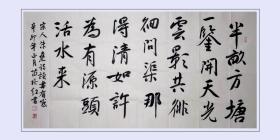 半畝方塘
一鑒開天光
雲影共徘
徊問渠那
得清如許
為有源頭
活水来
宋人朱熹詩讀書有感
辛卯年正月